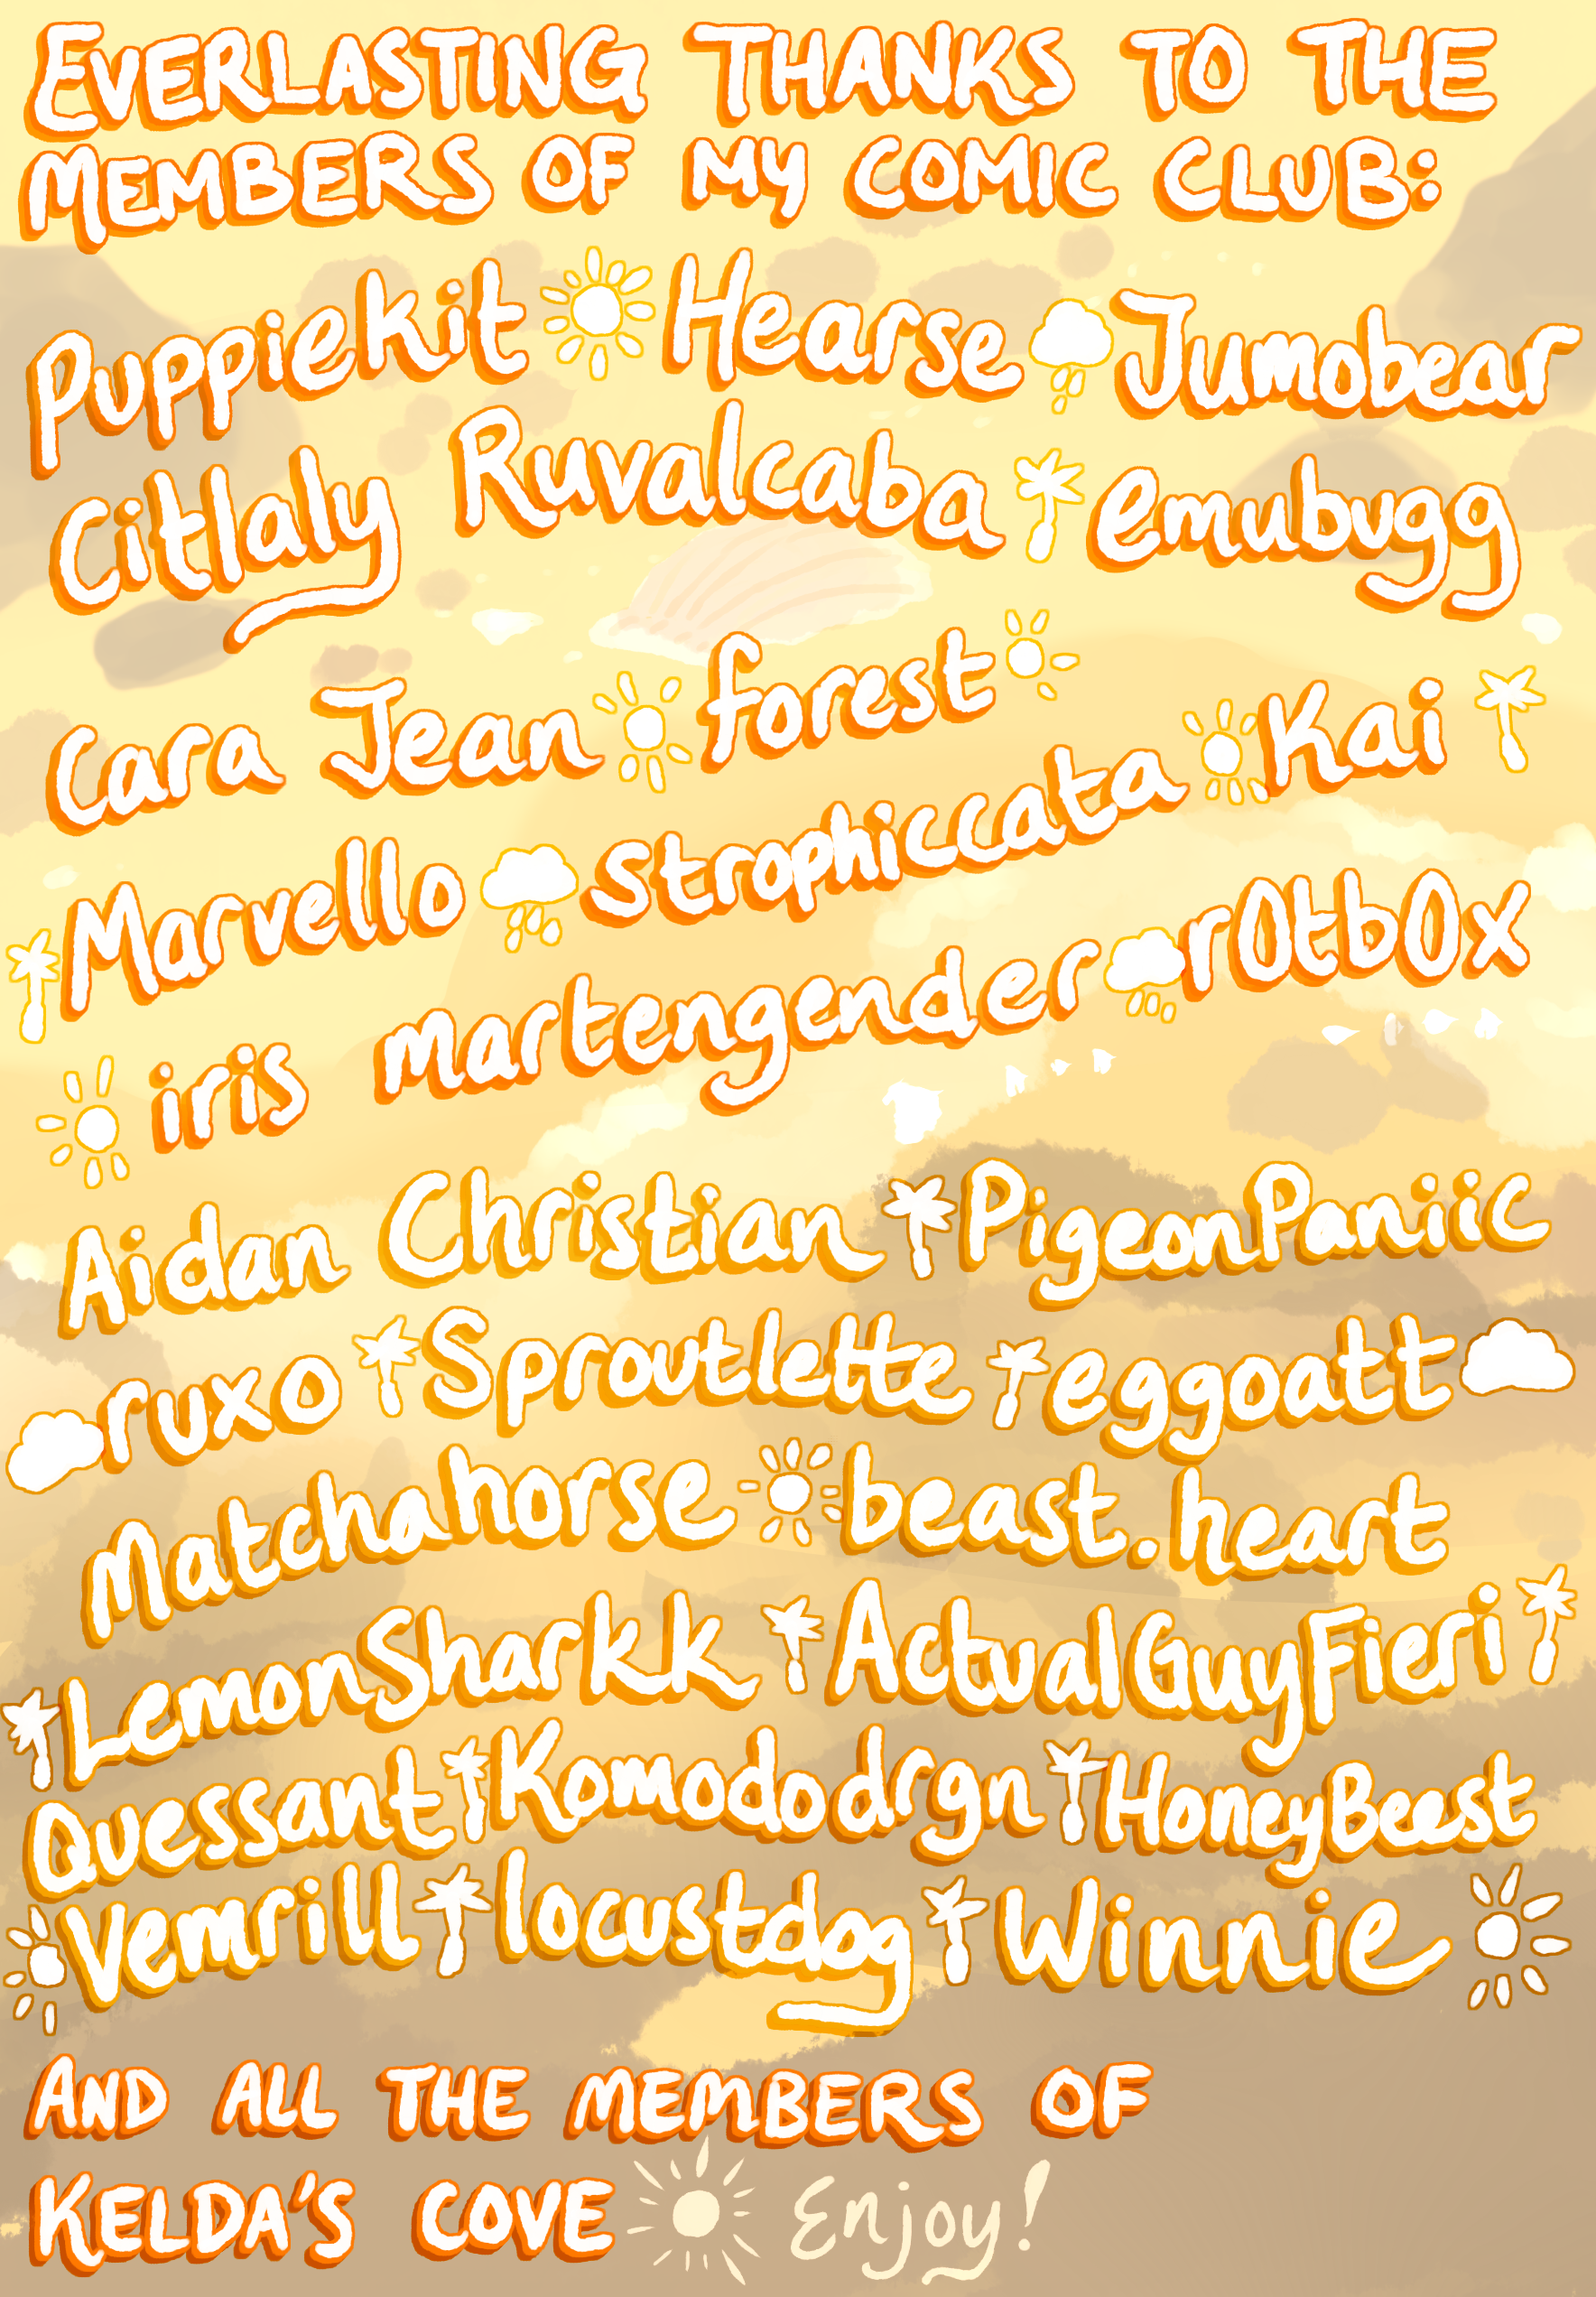 EVERLASTING THANKS TO THE
MEMBERS OF MY COMIC CLUB:
Puppiekit Hearse Jumobear
Citlaly Ruvalcaba emubugg
Cara Jean forest
Marvello strophiccata Kai
iris martengender r0tb0x
Aidan Christian PigeonPaniic
ruxo Sproutlette eggoatt
Matchahorse beast.heart
LemonSharkk ActualGuyFieri
Quessant Komododrgn HoneyBeest
Vemrill locustdog Winnie
AND ALL THE MEMBERS OF
KELDA'S COVE Enjoy!